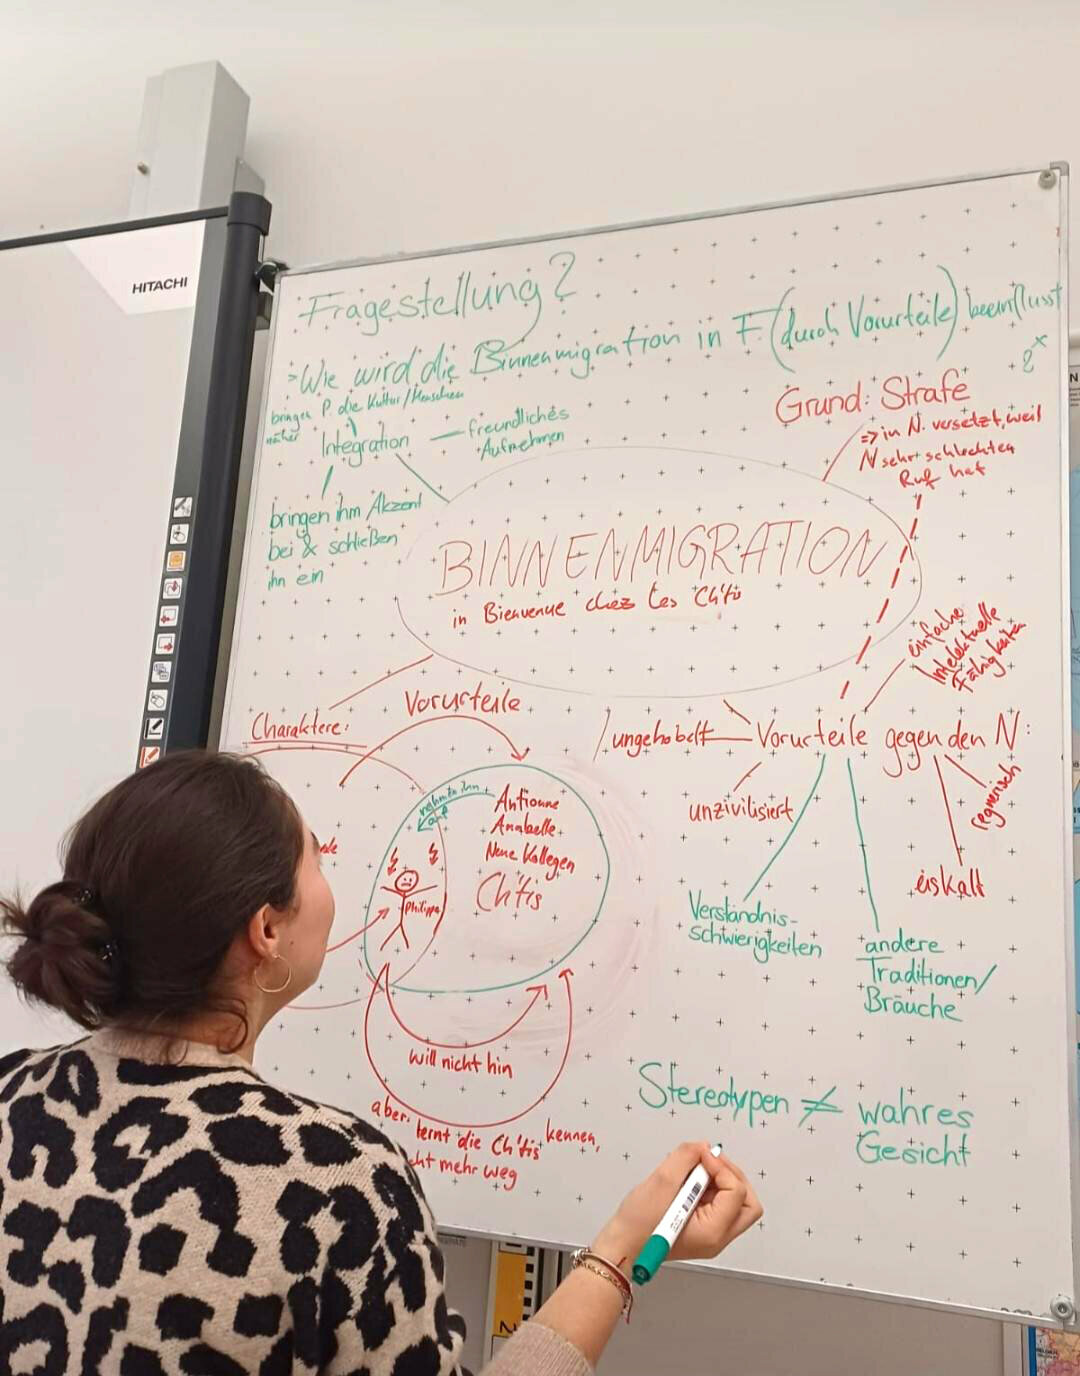 HITACHI
Fragestellung?
>Wie wird die Binnenmigration in F. (durch Vorurteile) beeinflusst
?
bringen P. die Kultur/Menschen
näher
Integration
freundliches
Aufnehmen
bringen ihm Akzent
bei & schließen
ihn ein
Grund: Strafe
=> in N. versetzt, weil
N sehr schlechten
Ruf hat
BINNENMIGRATION
in Bienvenue chez les Ch'tis
einfache
intelektuelle
Fähigkeiten
Charaktere:
Vorurteile
ungehobelt
Vorurteile gegen den N:
unzivilisiert
regnerisch
eiskalt
Verständnis-
schwierigkeiten
andere
Traditionen/
Bräuche
nehmen ihn
auf
Antioune
Anabelle
Neue Kollegen
Ch'tis
Philippe
will nicht hin
aber: lernt die Ch'tis kennen,
mehr weg
Stereotypen ≠ wahres
Gesicht